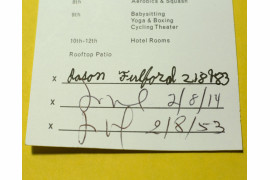 8th Aerobics & Squash
9th Babysitting
Yoga & Boxing
Cycling Theater
10th-12th Hotel Rooms
Rooftop Patio
x Jason Fulford 218983
x 2/8/14
x 2/8/53